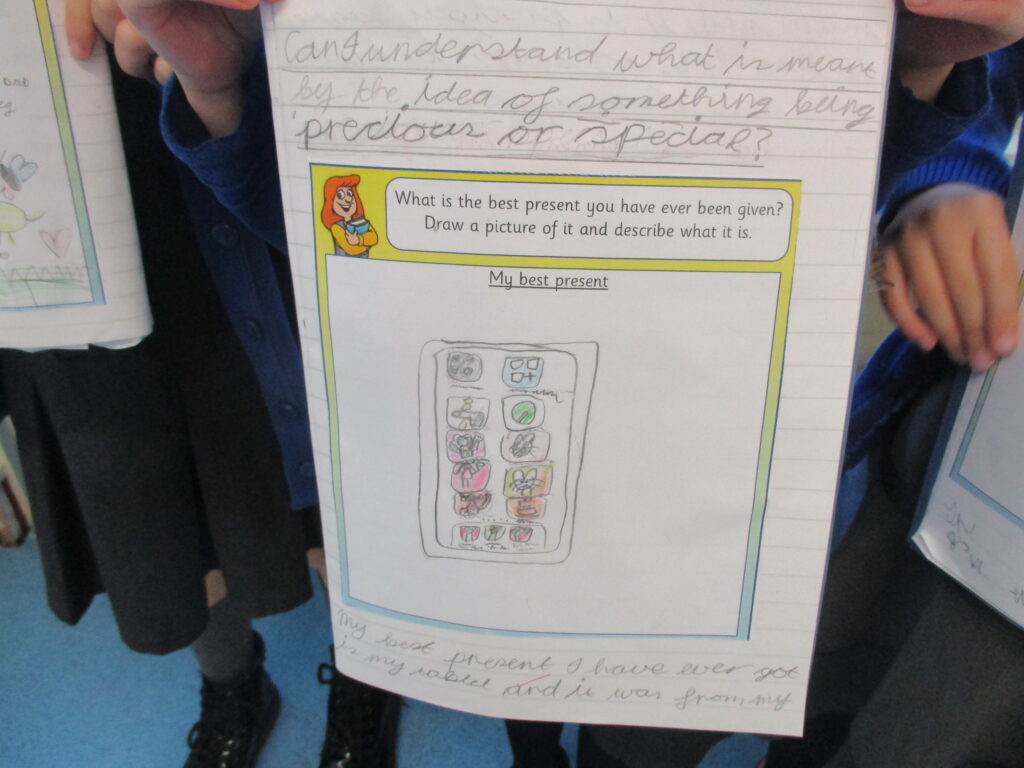 Can I understand what is meant
by the idea of something being
precious or special?
What is the best present you have ever been given?
Draw a picture of it and describe what it is.
My best present
My best present I have ever got
is my tablet and it was from my